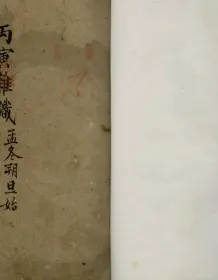 丙寅雜識孟冬朔旦始